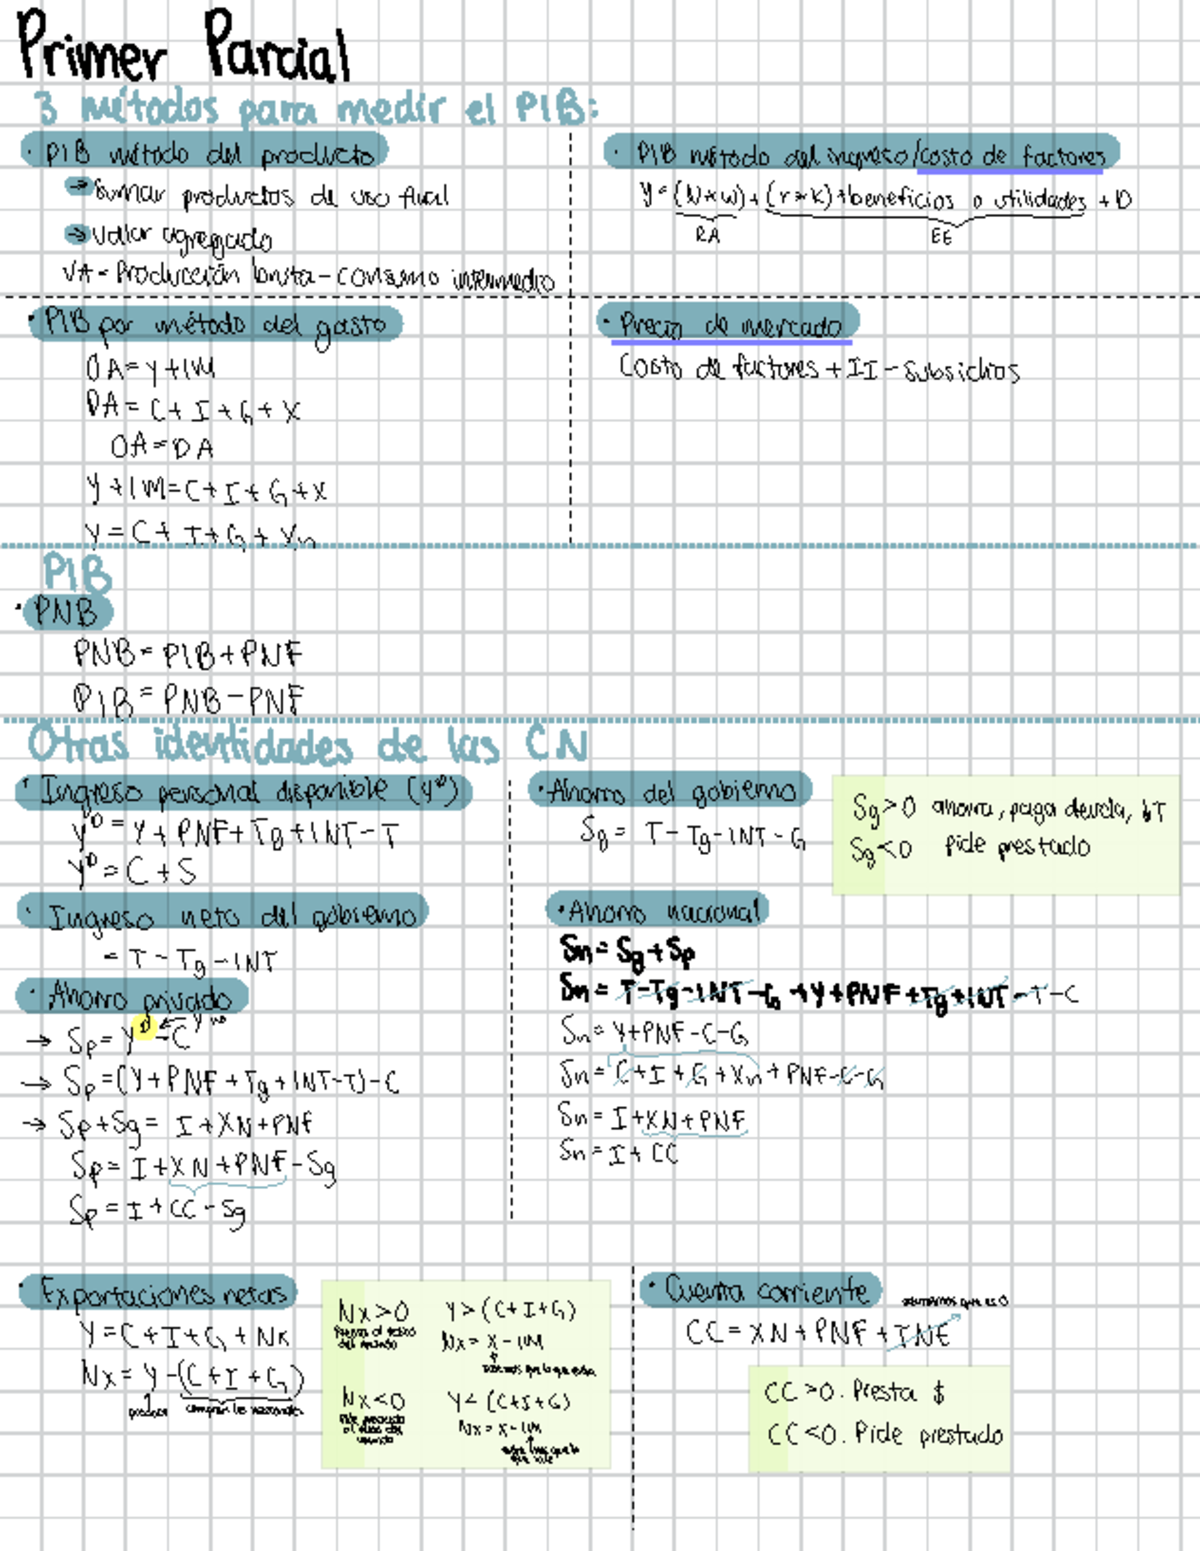 Primer Parcial
3 métodos para medir el PIB:
· PIB método del producto
→ Sumar productos de uso final
→ Valor agregado
VA = Producción bruta - consumo intermedio
· PIB método del ingreso/costo de factores
Y = (N*w) + (r*k) + beneficios o utilidades + D
RA EE
· PIB por método del gasto
OA = Y + IM
DA = C + I + G + X
OA = DA
Y + IM = C + I + G + X
Y = C + I + G + Xn
· Precio de mercado
Costo de factores + II - subsidios
PIB
· PNB
PNB = PIB + PNF
PIB = PNB - PNF
Otras identidades de las CN
· Ingreso personal disponible (Yᴰ)
Yᴰ = Y + PNF + Tg + INT - T
Yᴰ = C + S
· Ingreso neto del gobierno
= T - Tg - INT
· Ahorro privado
→ Sp = Yᴰ - C ← y no
→ Sp = (Y + PNF + Tg + INT - T) - C
→ Sp + Sg = I + XN + PNF
Sp = I + XN + PNF - Sg
Sp = I + CC - Sg
· Ahorro del gobierno
Sg = T - Tg - INT - G
Sg > 0 ahorra, paga deuda, ↓T
Sg < 0 Pide prestado
· Ahorro nacional
Sn = Sg + Sp
Sn = T - Tg - INT - G + Y + PNF + Tg + INT - T - C
Sn = Y + PNF - C - G
Sn = C + I + G + Xn + PNF - C - G
Sn = I + XN + PNF
Sn = I + CC
· Exportaciones netas
Y = C + I + G + NX
Nx = Y - (C + I + G)
producen compran los nacionales
Nx > 0 Y > (C + I + G)
Presta al resto del mundo
Nx = X - IM
Nx < 0 Y < (C + I + G)
Pide prestado al resto del mundo
Nx = X - IM
· Cuenta corriente
asumimos que es 0
CC = XN + PNF + TNE
CC > 0. Presta $
CC < 0. Pide prestado